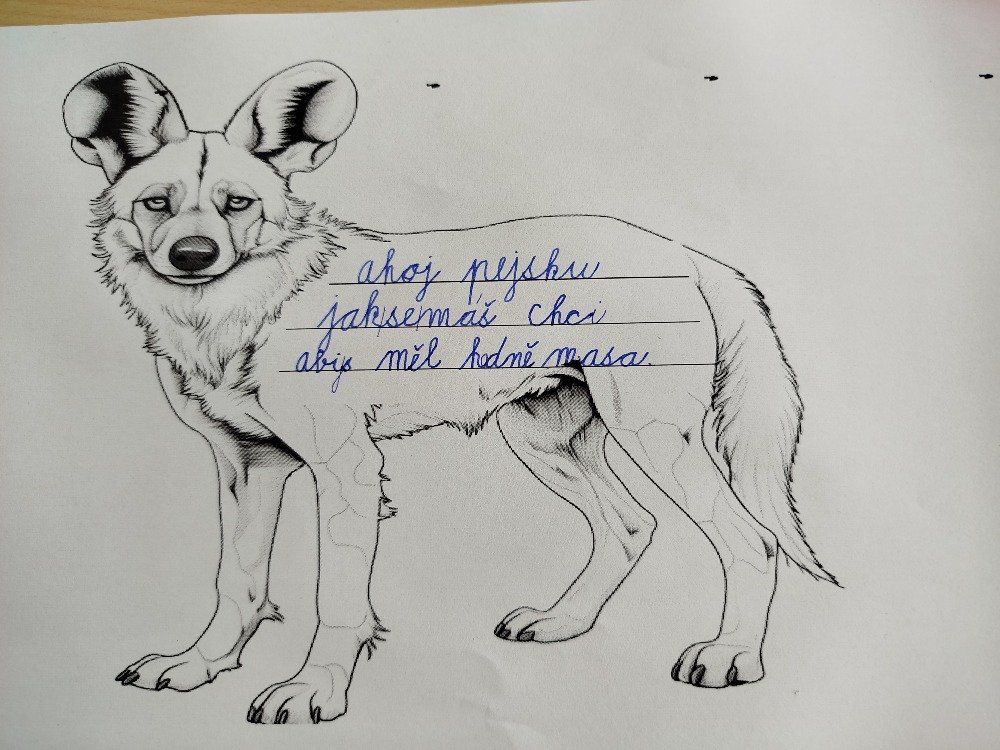 ahoj pejsku
jak se máš chci
abys měl hodně masa.